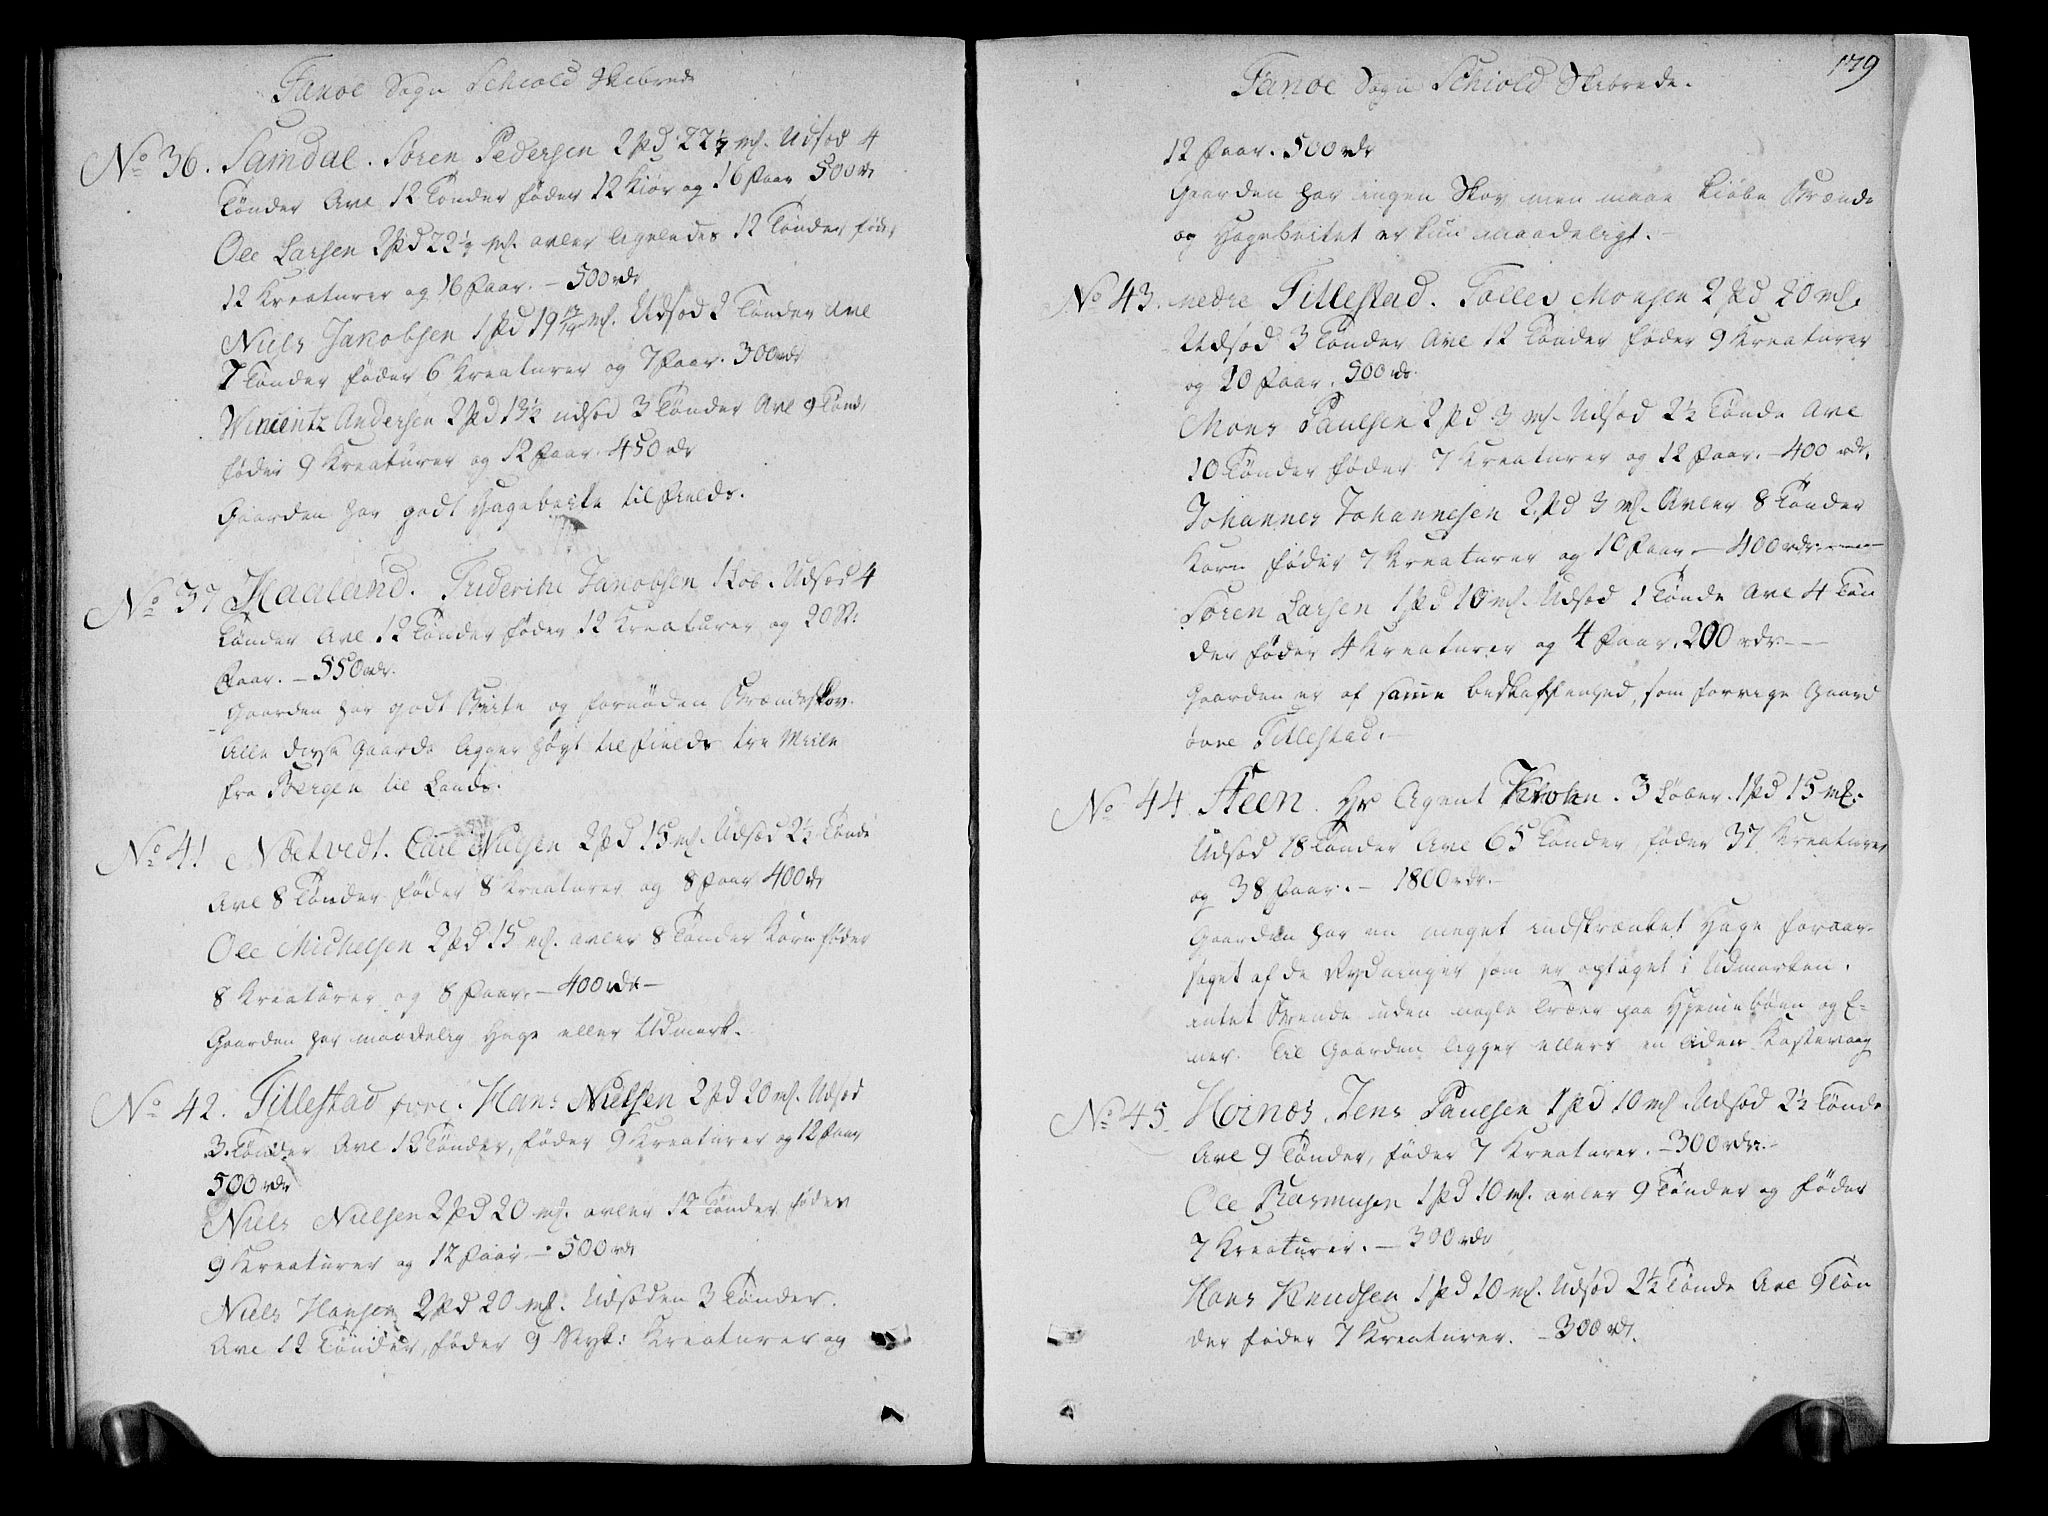 Fanoe Sogn Schiold Skibrede
No 36. Samdal. Sören Pedersen 2 pd 22½ mk. Udsæd 4
Tønder Avl 12 Tønder føder 12 Kiør og 16 Faar 500 rd
Ole Larsen 2 pd 22½ mk. avler ligeledes 12 Tønder føder
12 Kreaturer og 16 Faar. – 500 rdr
Niels Jakobsen 1 pd 19 mk. Udsæd 2 Tønder Avl
7 Tønder føder 6 Kreaturer og 7 Faar. 300 rdr
Wincentz Andersen 2 pd 13½ udsæd 3 Tønder Avl 9 Tønd.
føder 9 Kreaturer og 12 Faar. 450 rdr
Gaarden har godt Hagebeite til Fields.
No 37 Haaland. Friderike Jakobsen 1 Løb. Udsæd 4
Tønder Avl 12 Tønder føder 12 Kreaturer og 20 St:
Faar. – 550 rdr.
Gaarden har godt Beite og fornøden Brændeskov.
Alle disse Gaarde ligger høyt til Fields tre Miile
fra Bergen til Lands.
No 41 Nætvedt. Carl Nielsen 2 pd 15 mk. Udsæd 2½ Tønde
Avl 8 Tønder føder 8 Kreaturer og 8 Faar 400 rd
Ole Michelsen 2 pd 15 mk. avler 8 Tønder Korn føder
8 Kreaturer og 8 Faar. – 400 rdr –
Gaarden har maadelig Hage eller Udmark.
No 42. Titlestad øvre. Hans Nielsen 2 pd 20 mk. Udsæd
3 Tønder Avl 12 Tønder, føder 9 Kreaturer og 12 Faar
500 rdr
Niels Nielsen 2 pd 20 mk. avler 12 Tønder føder
9 Kreaturer og 12 Faar – 500 rd
Niels Hansen 2 pd 20 mk. Udsæden 3 Tønder.
Avl 12 Tønder, føder 9 Styk: Kreaturer og
179
Fanoe Sogn Schiold Skibrede.
12 Faar. 500 rdr
Gaarden har ingen Skov men maae kiøbe Brænde
og Hagebeitet er kun maadeligt. –
No 43. nedre Titlestad. Tolles Monsen 2 pd 20 mk.
Udsæd 3 Tønder Avl 12 Tønder føder 9 Kreaturer
og 20 Faar. 500 rdr.
Mons Paulsen 2 pd 3 mk. Udsæd 2½ Tønde Avl
10 Tønder føder 7 Kreaturer og 12 Faar. – 400 rdr.
Johannes Johannesen 2 pd 3 mk. Avler 8 Tønder
Korn føder 7 Kreaturer og 10 Faar – 400 rdr.
Sören Larsen 1 pd 10 mk. Udsæd 1 Tønde Avl 4 Tøn
der føder 4 Kreaturer og 4 Faar. 200 rdr. – –
Gaarden er af samme beskaffenhed, som forrige Gaard
øvre Titlestad. –
No 44 Steen. Hr Agent Krohn. 3 Løber. 1 pd 15 mk.
Udsæd 18 Tønder Avl 65 Tønder, føder 37 Kreaturer
og 38 Faar. – 1800 rdr. –
Gaarden har en meget indskrænket Hage foraar-
saget af de Rydninger som er optaget i Udmarken.
intet Brende uden nogle Træer paa Hjemmebøen og E-
ner. Til Gaarden ligger ellers en liden Kastevaag
No 45 Hoinæs. Jens Paulsen 1 pd 10 mk Udsæd 2½ Tønde
Avl 9 Tønder, føder 7 Kreaturer. – 300 rdr. –
Ole Rasmusen 1 pd 10 mk. avler 9 Tønder og føder
7 Kreaturer. – 300 rdr
Hans Knudsen 1 pd 10 mk. Udsæd 2½ Tønde Avl 9 Tøn
der føder 7 Kreaturer. – 300 rd.